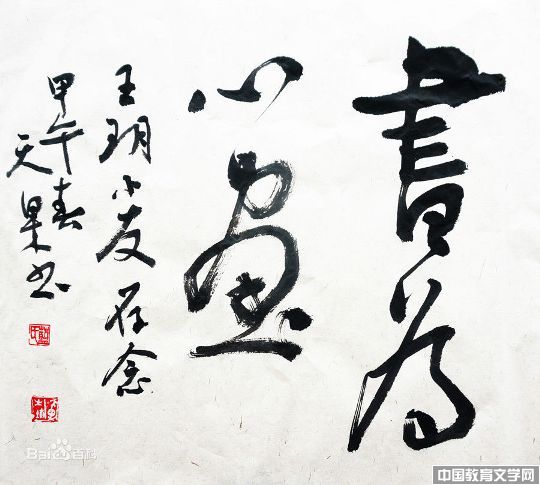 書為
心畫
王玥小友存念
甲午春
天果书
Baidu百科
中国教育文学网